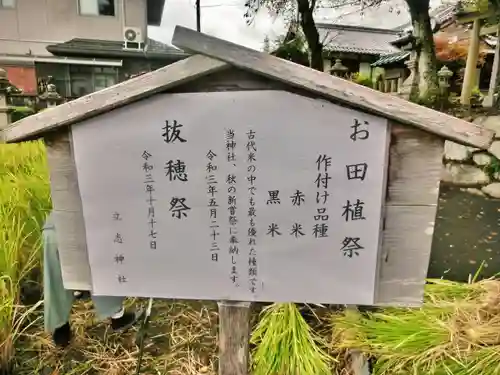 お田植祭
作付け品種
赤米
黒米
古代米の中でも最も優れた種類です
当神社、秋の新嘗祭に奉納します。
令和三年五月二十三日
抜穂祭
令和三年十月十七日
立志神社